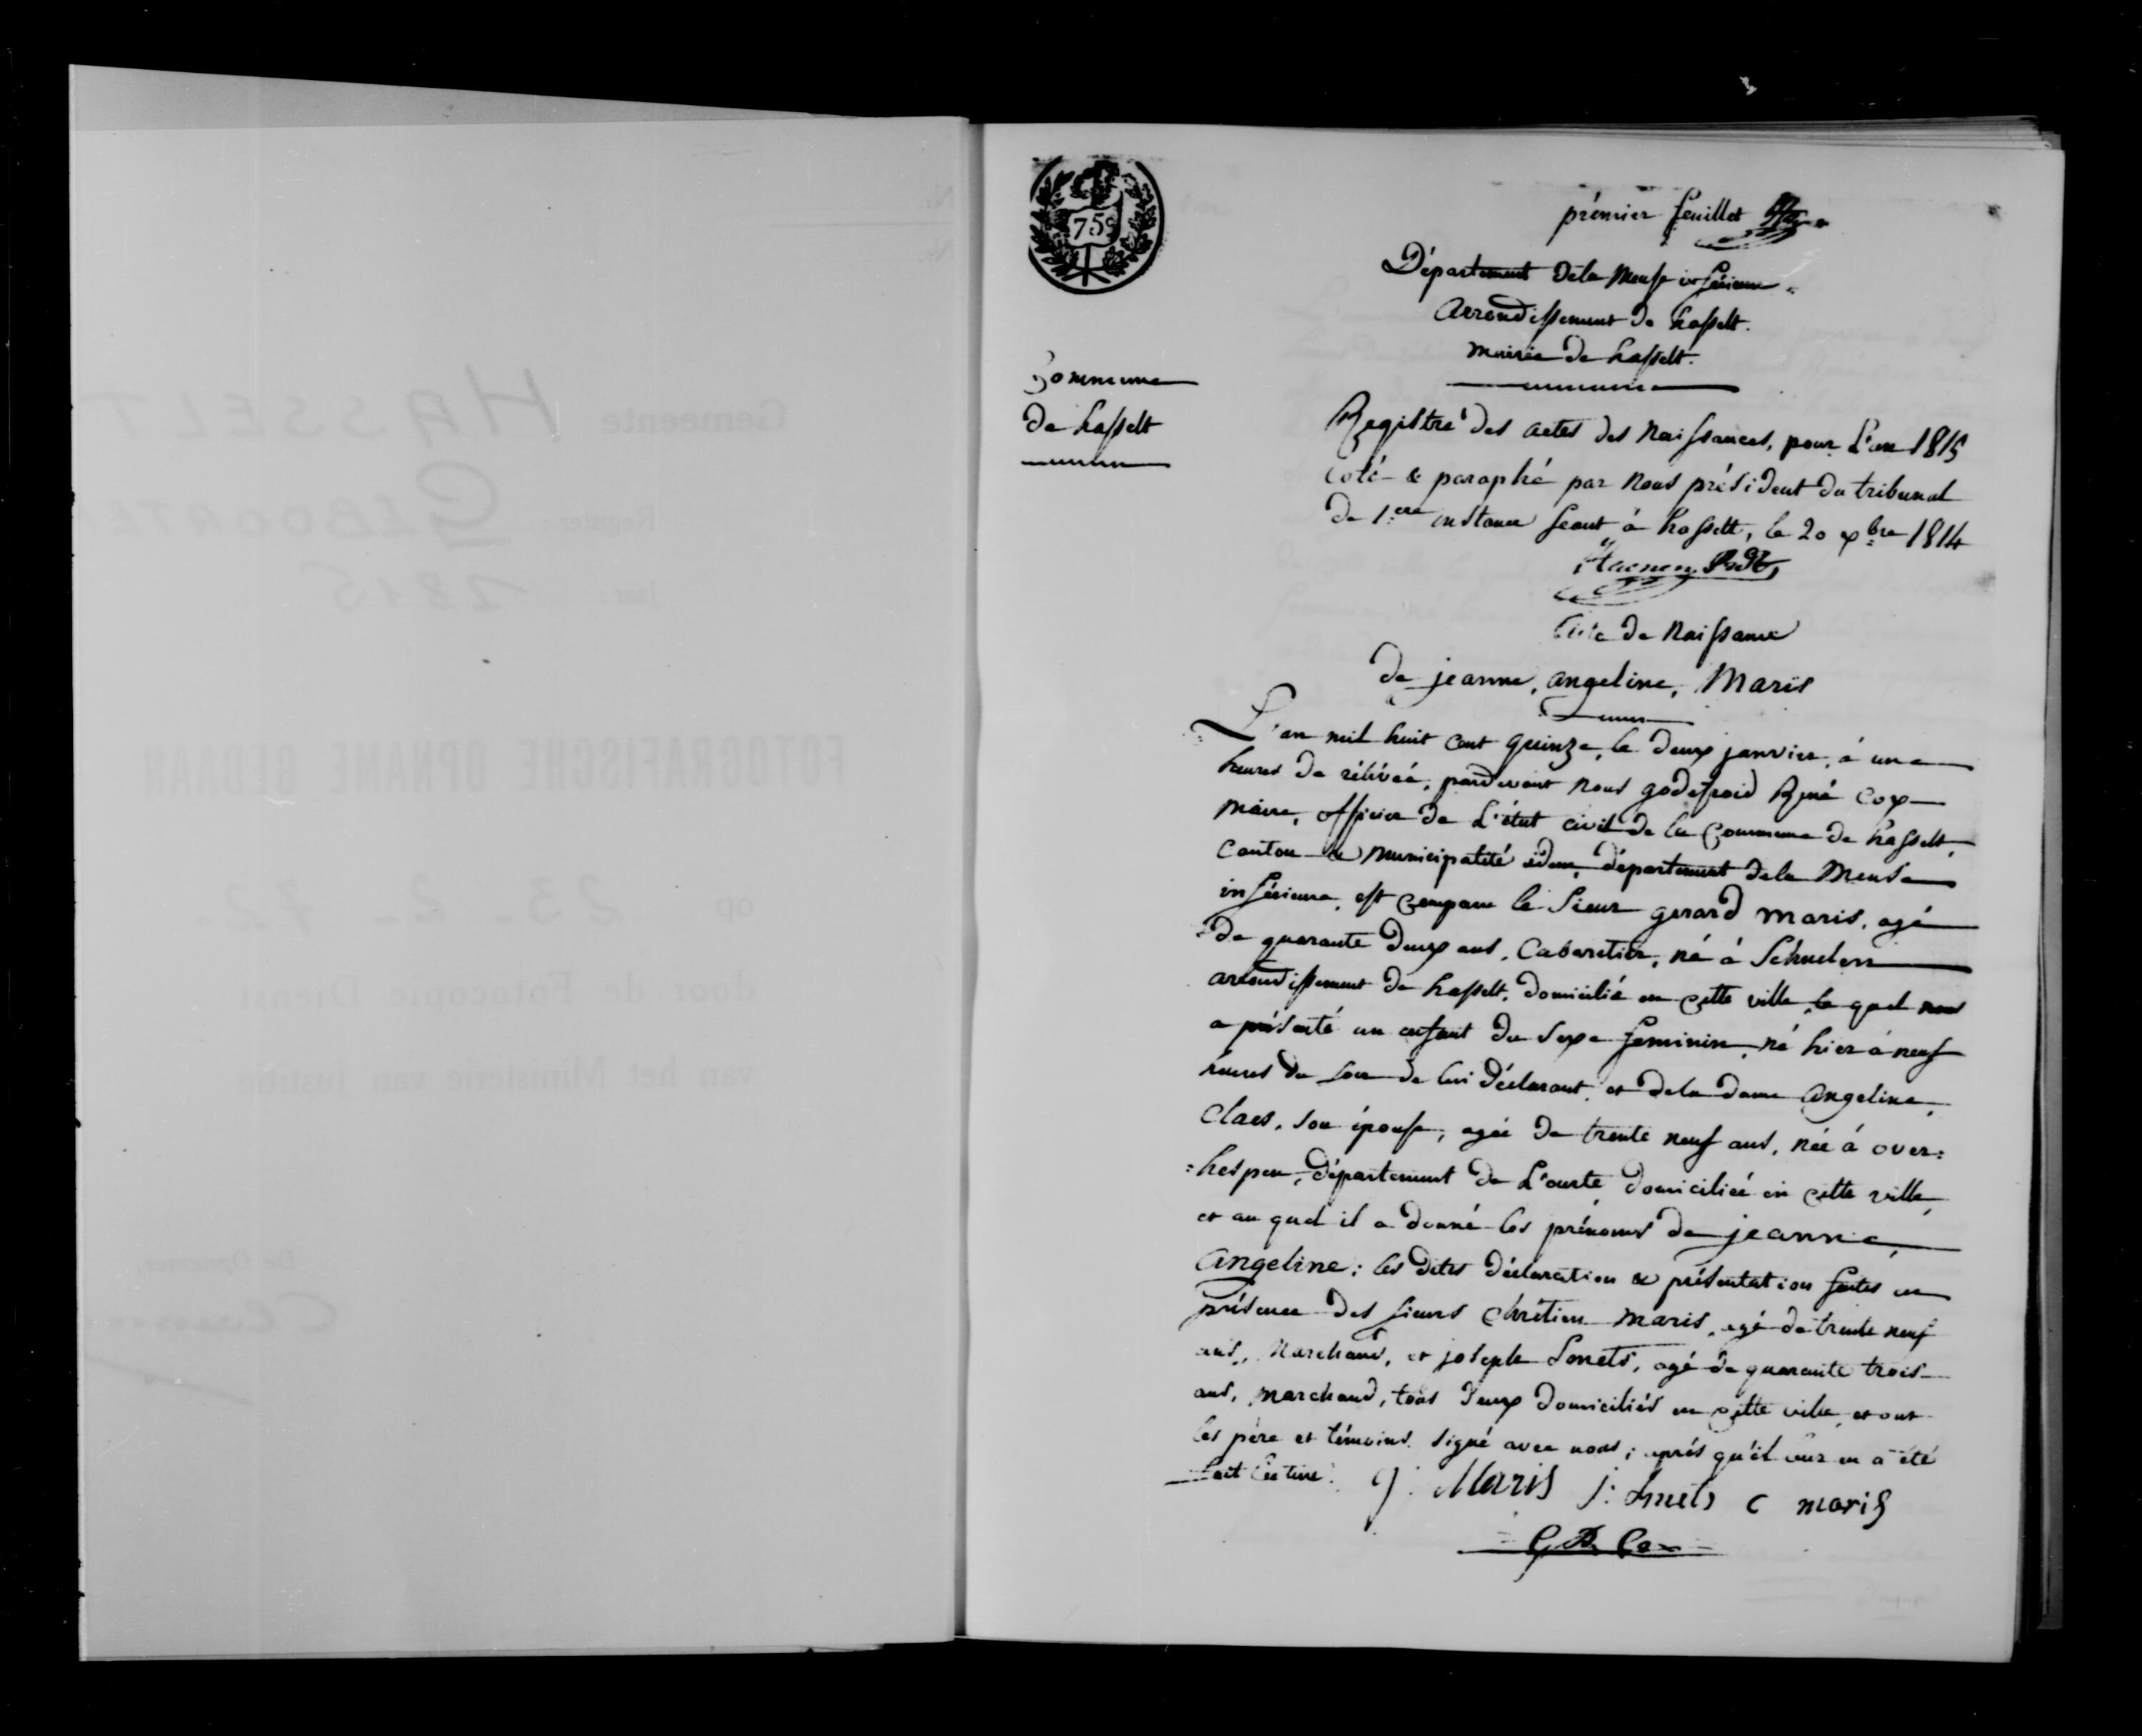 Gemeente HASSELT
Register: GEBOORTE
Jaar: 1815
FOTOGRAFISCHE OPNAME GEDAAN
op 23-2-72-
door de Fotocopie Dienst
van het Ministerie van Justitie
De Opnemer,
75c
prémier feuillet
Département dela Meuse inférieure
arrondissement de hasselt.
Mairie de hasselt.
Commune
de hasselt
Registre des actes des Naissances, pour L'an 1815
Coté & paraphé par Nous président du tribunal
de 1.ere instance séant à hasselt, le 20 xbre 1814
Acte de Naissance
de jeanne, angeline, Maris
L'an mil huit cent quinze, le deux janvier, à une
heures de rélévéé, pardevant nous godefroid René Cox
Maire, officier de L'état civil de la Commune de hasselt,
Canton & Municipalité idem, département dela Meuse
inférieure, est comparu le Sieur gerard Maris, agé
de quarante deux ans, Cabaretier, né à Schuelen
arrondissement de hasselt, domicilié en cette ville, le quel nous
a présenté un enfant du Sexe feminin, né hier à neuf
heures du soir de lui déclarant, et dela dame Angeline,
Claes, son épouse, agée de trente neuf ans, née à over=
=hespen, département de L'ourte, domiciliéé en cette ville,
et au quel il a donné les prénoms de jeanne,
Angeline; les dites déclaration & présentation faites en
présence des Sieurs Chrétien Maris, agé de trente neuf
ans, Marchand, et joseph Smets, agé de quarante trois
ans, Marchand, tous deux domiciliés en cette ville, et ont
les père et témoins signé avec nous; aprés qu'il leur en a été
fait lecture.
g. Maris j. Smets C maris
G R Cox